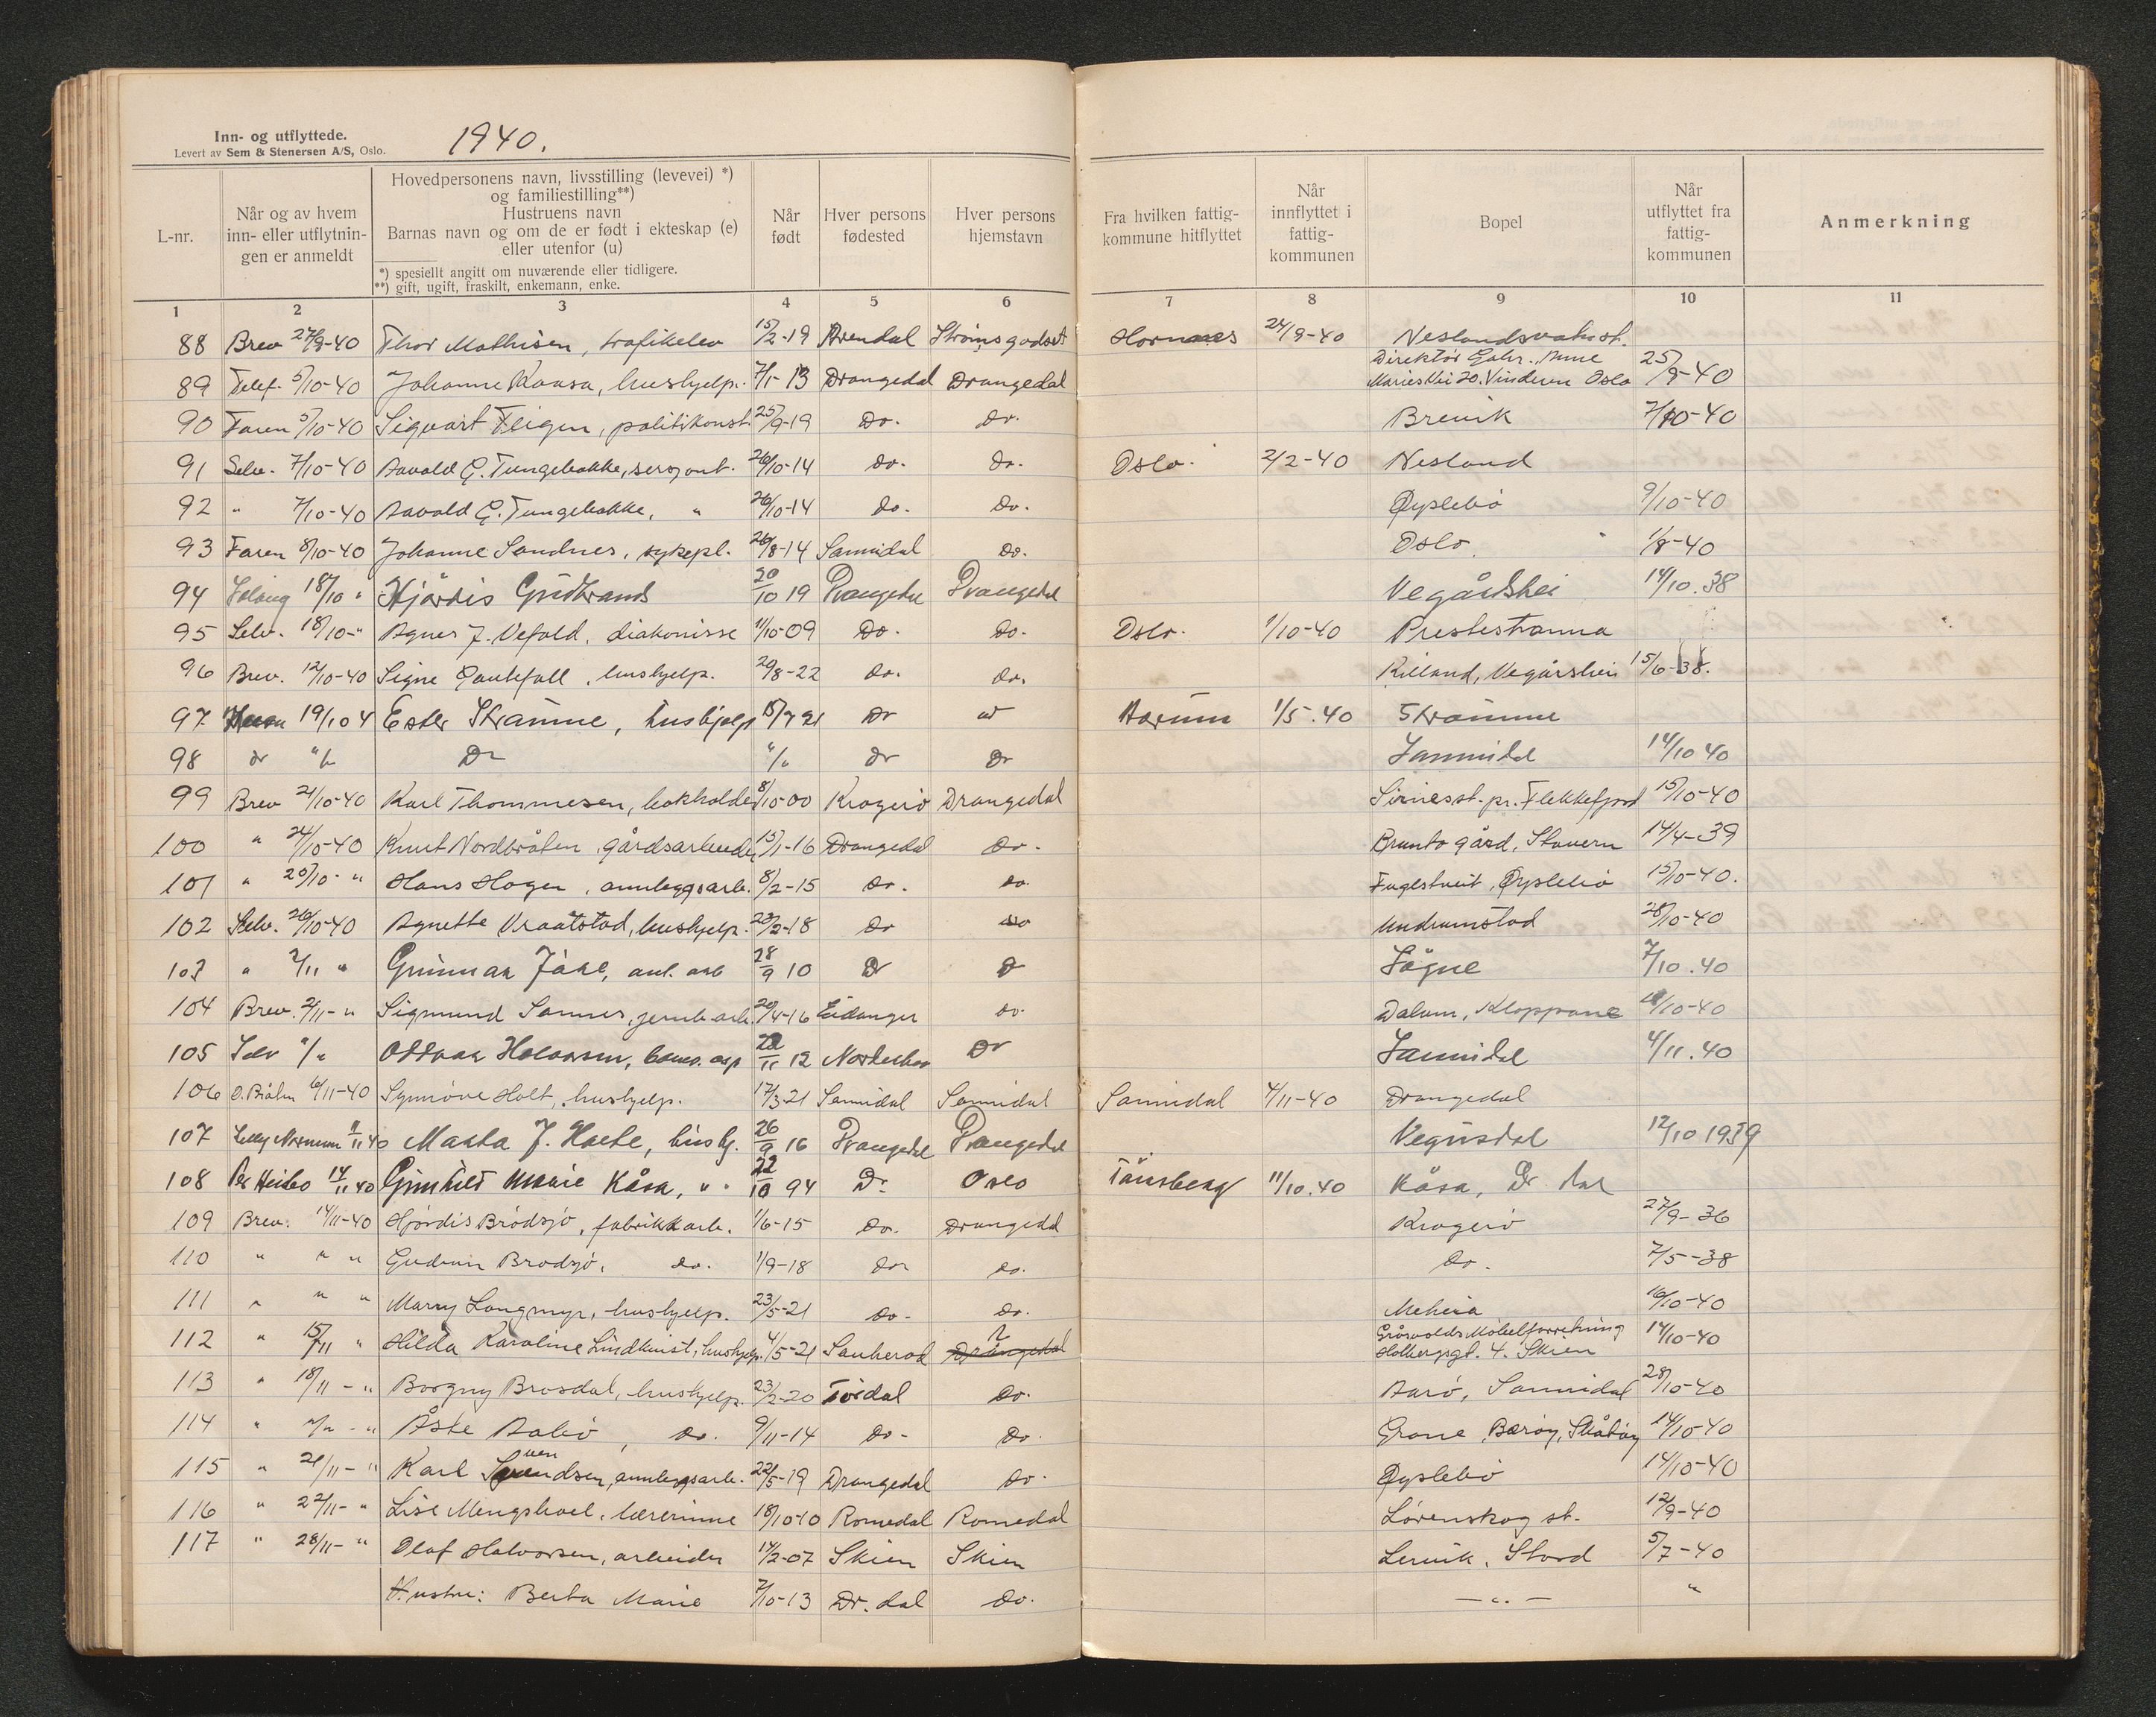 Inn- og utflyttede.
Levert av Sem & Stenersen A/S, Oslo.
1940.
L-nr.
Når og av hvem
inn- eller utflytnin-
gen er anmeldt
Hovedpersonens navn, livsstilling (levevei) *)
og familiestilling**)
Hustruens navn
Barnas navn og om de er født i ekteskap (e)
eller utenfor (u)
*) spesiellt angitt om nuværende eller tidligere.
**) gift, ugift, fraskilt, enkemann, enke.
Når
født
Hver persons
fødested
Hver persons
hjemstavn
Fra hvilken fattig-
kommune hitflyttet
Når
innflyttet i
fattig-
kommunen
Bopel
Når
utflyttet fra
fattig-
kommunen
Anmerkning
1 2 3 4 5 6 7 8 9 10 11
88 Brev 27/9-40 Thor Mathisen, trafikelev 15/2-19 Arendal Strømsgodset Hornnes 24/9-40 Neslandsvatn st.
89 Telef. 5/10-40 Johanne Kaasa, hushjelp. 7/1-13 Drangedal Drangedal Direktør Anne
Maries Vei 20. Vinderen Oslo 25/9-40
90 Faren 5/10-40 Sigvart Fleigen, politikonst. 25/9-19 Do. Do. Brevik 7/10-40
91 Selv. 7/10-40 Aavald G. Tungebakke, sersjant. 26/10-14 do. do. Oslo. 2/2-40 Nesland
92 " 7/10-40 Aavald G. Tungebakke, " 26/10-14 do. Do. Øyslebø 9/10-40
93 Faren 8/10-40 Johanne Sandnes, sykepl. 26/8-14 Sannidal Do. Oslo 1/8-40
94 18/10 " Hjördis Gudbrands 20/10 19 Drangedal Drangedal Vegårdshei 14/10.38
95 Selv. 18/10-" Agnes J. Vefald, diakonisse 11/10-09 Do. do. Oslo. 1/10-40 Prestestranna
96 Brev. 12/10-40 Signe Gautefall, hushjelp. 29/8-22 do. do. Killand, Vegårshei 15/6-38.
97 19/10 4 Ester Strømme, hushjelp 15/7 21 Dr Bærum 1/5.40 Strømme
98 dr "/" Dr "/" dr Dr Sannidal 14/10 40
99 Brev 21/10-40 Karl Thommesen, bokholder 8/10-00 Kragerø Drangedal Sirnes st. pr. Flekkefjord 15/10-40
100 " 24/10-40 Knut Nordbråten, gårdsarbeider 15/1-16 Drangedal Do. Brunla gård, Stavern 14/4-39
101 " 25/10- " Hans Hagen, annleggsarb. 8/2-15 do. do. Fuglestveit, Øyslebø 15/10-40.
102 Selv. 26/10-40 Agnette Vraalstad, hushjelp. 23/2-18 do do Undrumstad 28/10-40
103 " 2/11 " Gunnar Jåre, anl. arb 28/9 10 Dr Dr Søgne 7/10.40
104 Brev. 2/11-" Sigmund Sannes, jernb. arb. 20/4-16 Eidanger do. Dalam, Kloppane 4/10-40
105 Selv "/" Oddvar Halvorsen, banev. asp 22/11 12 Dr Sannidal 4/11.40
106 6/11-40 Synnøve Holt, hushjelp. 17/3-21 Sannidal Sannidal Sannidal 4/11-40 Drangedal
107 11/11 40 Marta J. Haabe, hushj. 26/9 16 Drangedal Drangedal Vegusdal 12/10 1939
108 Per Heibo 14/11 40 Gunhild Marie Kåsa, " 22/10 94 Dr Oslo Tønsberg 11/10.40 Kåsa, Dr dal
109 Brev. 14/11-40 Hjørdis Brødsjø, fabrikkarb. 1/6-15 do. Drangedal Kragerø 27/9-36
110 " " " Gudrun Brødsjø, do. 1/9-18 do. do. Do. 7/5-38
111 " " " Marry Langmyr, hushjelp. 23/5-21 do. do. Meheia 16/10-40
112 " 15/11 " Hilda Karoline Lindkvist, hushjelp. 4/5-21 Sauherad Drangedal ? Gråvolds Møbelforretning
Holbergsgt. 4. Skien 14/10-40
113 " 18/11-" Borgny Brosdal, hushjelp. 23/2-20 Tørdal Do. Aarø, Sannidal 28/10-40
114 " "/"-" Åste Aabø, do. 9/11-14 do- do. Grane, Bærøy, Skåtøy 14/10-40
115 " 21/11-" Karl Svendsen, annleggsarb. 22/5-19 Drangedal do. Øyslebø 14/10-40
116 " 22/11-" Lise Mengshoel, lærerinne 18/10-10 Romedal Romedal Lørenskog st. 12/9-40
117 " 28/11-" Olaf Halvorsen, arbeider 14/2-07 Skien Skien Lervik, Stord 5/7-40
Hustru: Berta Marie 7/10-13 Dr. dal do. —"— "